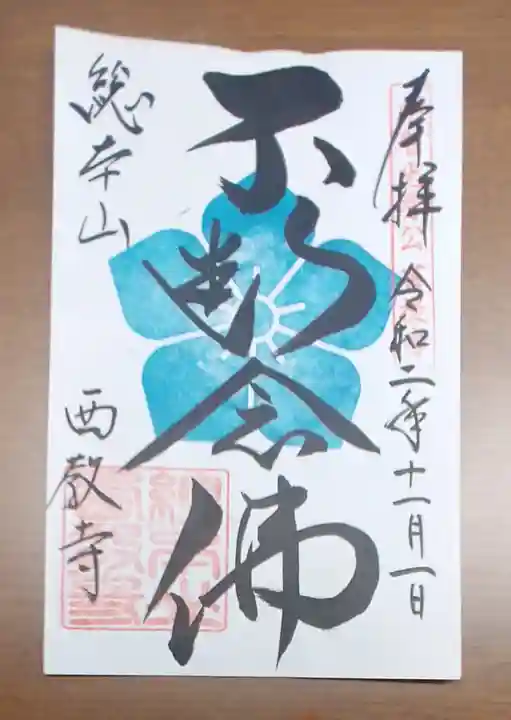 奉拝 令和二年十一月一日
不断念佛
総本山 西教寺